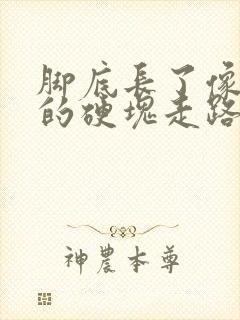 脚底長了像
的硬塊走路
神農本尊